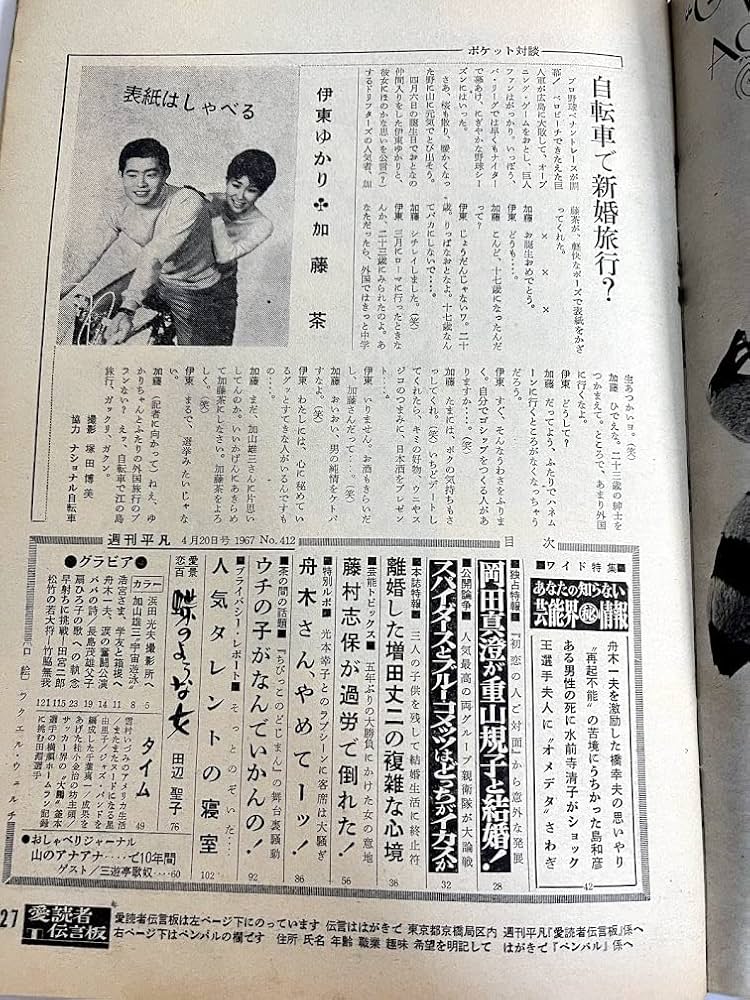 ポケット対談
自転車で新婚旅行?
伊東ゆかり♣加藤 茶
表紙はしゃべる
プロ野球ペナントレースが開
幕! ベロビーチできたえた巨
人軍が広島に大敗して、オープ
ニング・ゲームをおとし、巨人
ファンはがっかり。いっぽう、
パ・リーグでは早くもナイター
で幕あけ、にぎやかな野球シー
ズンにはいった。
さあ、桜も散り、暖かくなっ
た野に山に元気でとび出そう。
四月六日の誕生日でおとなの
仲間入りをした伊東ゆかりと、
彼女にほのかな思いを公言(?)
するドリフターズの人気者、加
藤茶が、軽快なポーズで表紙をかざ
ってくれた。
× × ×
加藤 お誕生おめでとう。
伊東 どうも……。
加藤 こんど、十七歳になったんだ
って?
伊東 じょうだんじゃないワ。二十
歳。りっぱなおとなよ。十七歳なん
てバカにしないで……。
加藤 シチレイしました。(笑)
伊東 三月にローマに行ったときな
んか、二十三歳にみられたのよ。あ
なただったら、外国ではきっと中学
生あつかいヨ。(笑)
加藤 ひでえな。二十三歳の紳士を
つかまえて。ところで、あまり外国
に行くなよ。
伊東 どうして?
加藤 だってよう、ふたりでハネム
ーンに行くところがなくなっちゃう
だろう。
伊東 すぐ、そんなうわさをふりま
く。自分でゴシップをつくる人があ
りますか……。(笑)
加藤 たまには、ボクの気持ちもさ
っしてくれ。(笑)いちどデートし
てくれたら、キミの好物、ウニやス
ジコのつまみに、日本酒をプレゼン
ト……。
伊東 いりません。お酒もきらいだ
し、加藤さんだって……。(笑)
加藤 おいおい、男の純情をケトバ
すなよ。(笑)
伊東 わたしには、心に秘めてい
るグッとすてきな人がいるんですも
の……。
加藤 まだ、加山雄三さんに片思い
してんのか。いいかげんにあきらめ
て加藤茶にしなさい。加藤茶をよろ
しく。(笑)
伊東 まるで、選挙みたいじゃな
い。
加藤 (記者に向かって)ねえ、ゆ
かりちゃんとふたりの外国旅行のプ
ランない? えッ、自転車で江の島
旅行、ガックリ、ガクン。
撮影 塚田博美
協力 ナショナル自転車
週刊平凡 4月20日号 1967 No.412
目 次
■ワイド特集■
あなたの知らない
芸能界㊙情報
舟木一夫を激励した橋幸夫の思いやり
“再起不能”の苦境にうちかった島和彦
ある男性の死に水前寺清子がショック
王選手夫人に“オメデタ”さわぎ
42
■独占特報■『初恋の人ご対面』から意外な発展
岡田真澄が重山規子と結婚!
28
■公開論争■ 人気最高の両グループ親衛隊が大論戦
スパイダースとブルー・コメッツはどっちがイカスか
32
■本誌特報■ 三人の子供を残して結婚生活に終止符
離婚した増田丈二の複雑な心境
38
■芸能トピックス■ 五年ぶりの大勝負にかけた女の意地
藤村志保が過労で倒れた!
56
■特別ルポ■ 光本幸子とのラブシーンに客席は大騒ぎ
舟木さん、やめてーッ!
86
■茶の間の話題■『ちびっこのどじまん』の舞台裏騒動
ウチの子がなんでいかんの!
92
■プライバシー・レポート■ そっとのぞいた…
人気タレントの寝室
102
愛景
恋百
蝶のような女
田辺 聖子
76
タイム
雪村いづみのアメリカ生活
/またまたヌードになる星
由里子/ジャズ・バンドを
編成した千葉真一/成果を
あげた桂小金治の坊主頭/
サッカー界の“大鵬”釜本
選手の横顔/ホームラン記録
に挑む田淵選手
49
●グラビア●
カラー
浜田光夫撮影所へ 5
加山雄三/宇宙遊泳 8
浩宮さま、学友と箱根へ 11
舟木一夫、涙の奮闘公演 14
パパの詩/長島茂雄父子 19
扇ひろ子の歌への執念 23
早射ちに挑戦!田宮二郎 115
松竹の若大将―竹脇無我 121
●おしゃべりジャーナル
山のアナアナ……で10年間
ゲスト/三遊亭歌奴……60
(口絵) ラクエル・ウェルチ
27
愛読者
伝言板
愛読者伝言板は左ページ下にのっています 伝言ははがきで 東京都京橋局区内 週刊平凡『愛読者伝言板』係へ
右ページ下はペンパルの欄です 住所 氏名 年齢 職業 趣味 希望を明記して はがきで『ペンパル』係へ